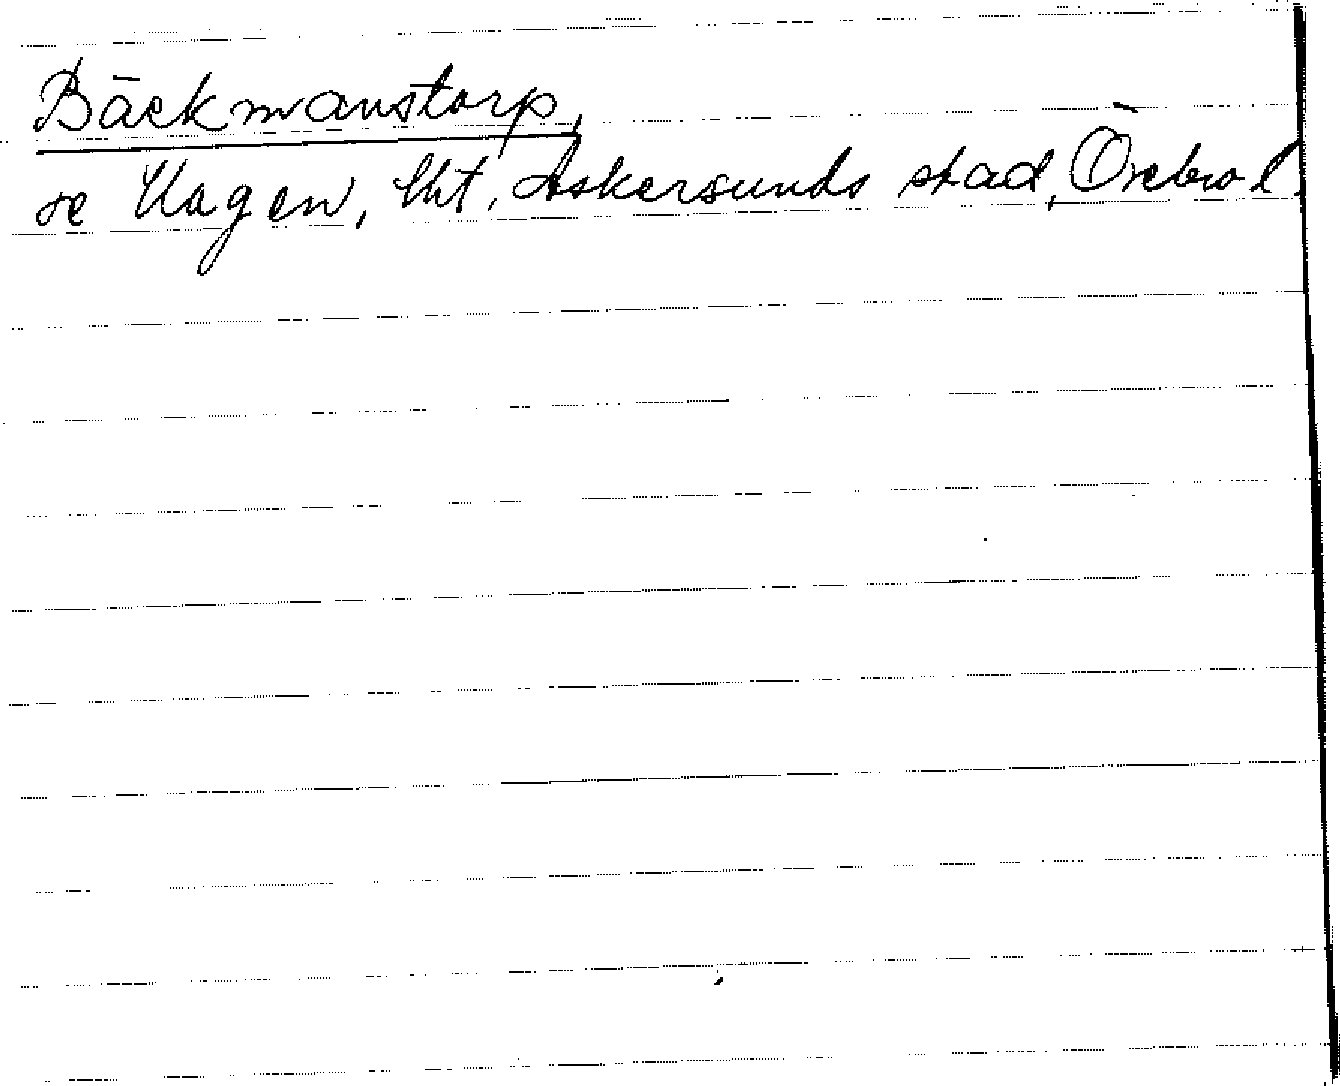 Bäckmanstorp,
se Hagen, lht, Askersunds stad, Örebro l.